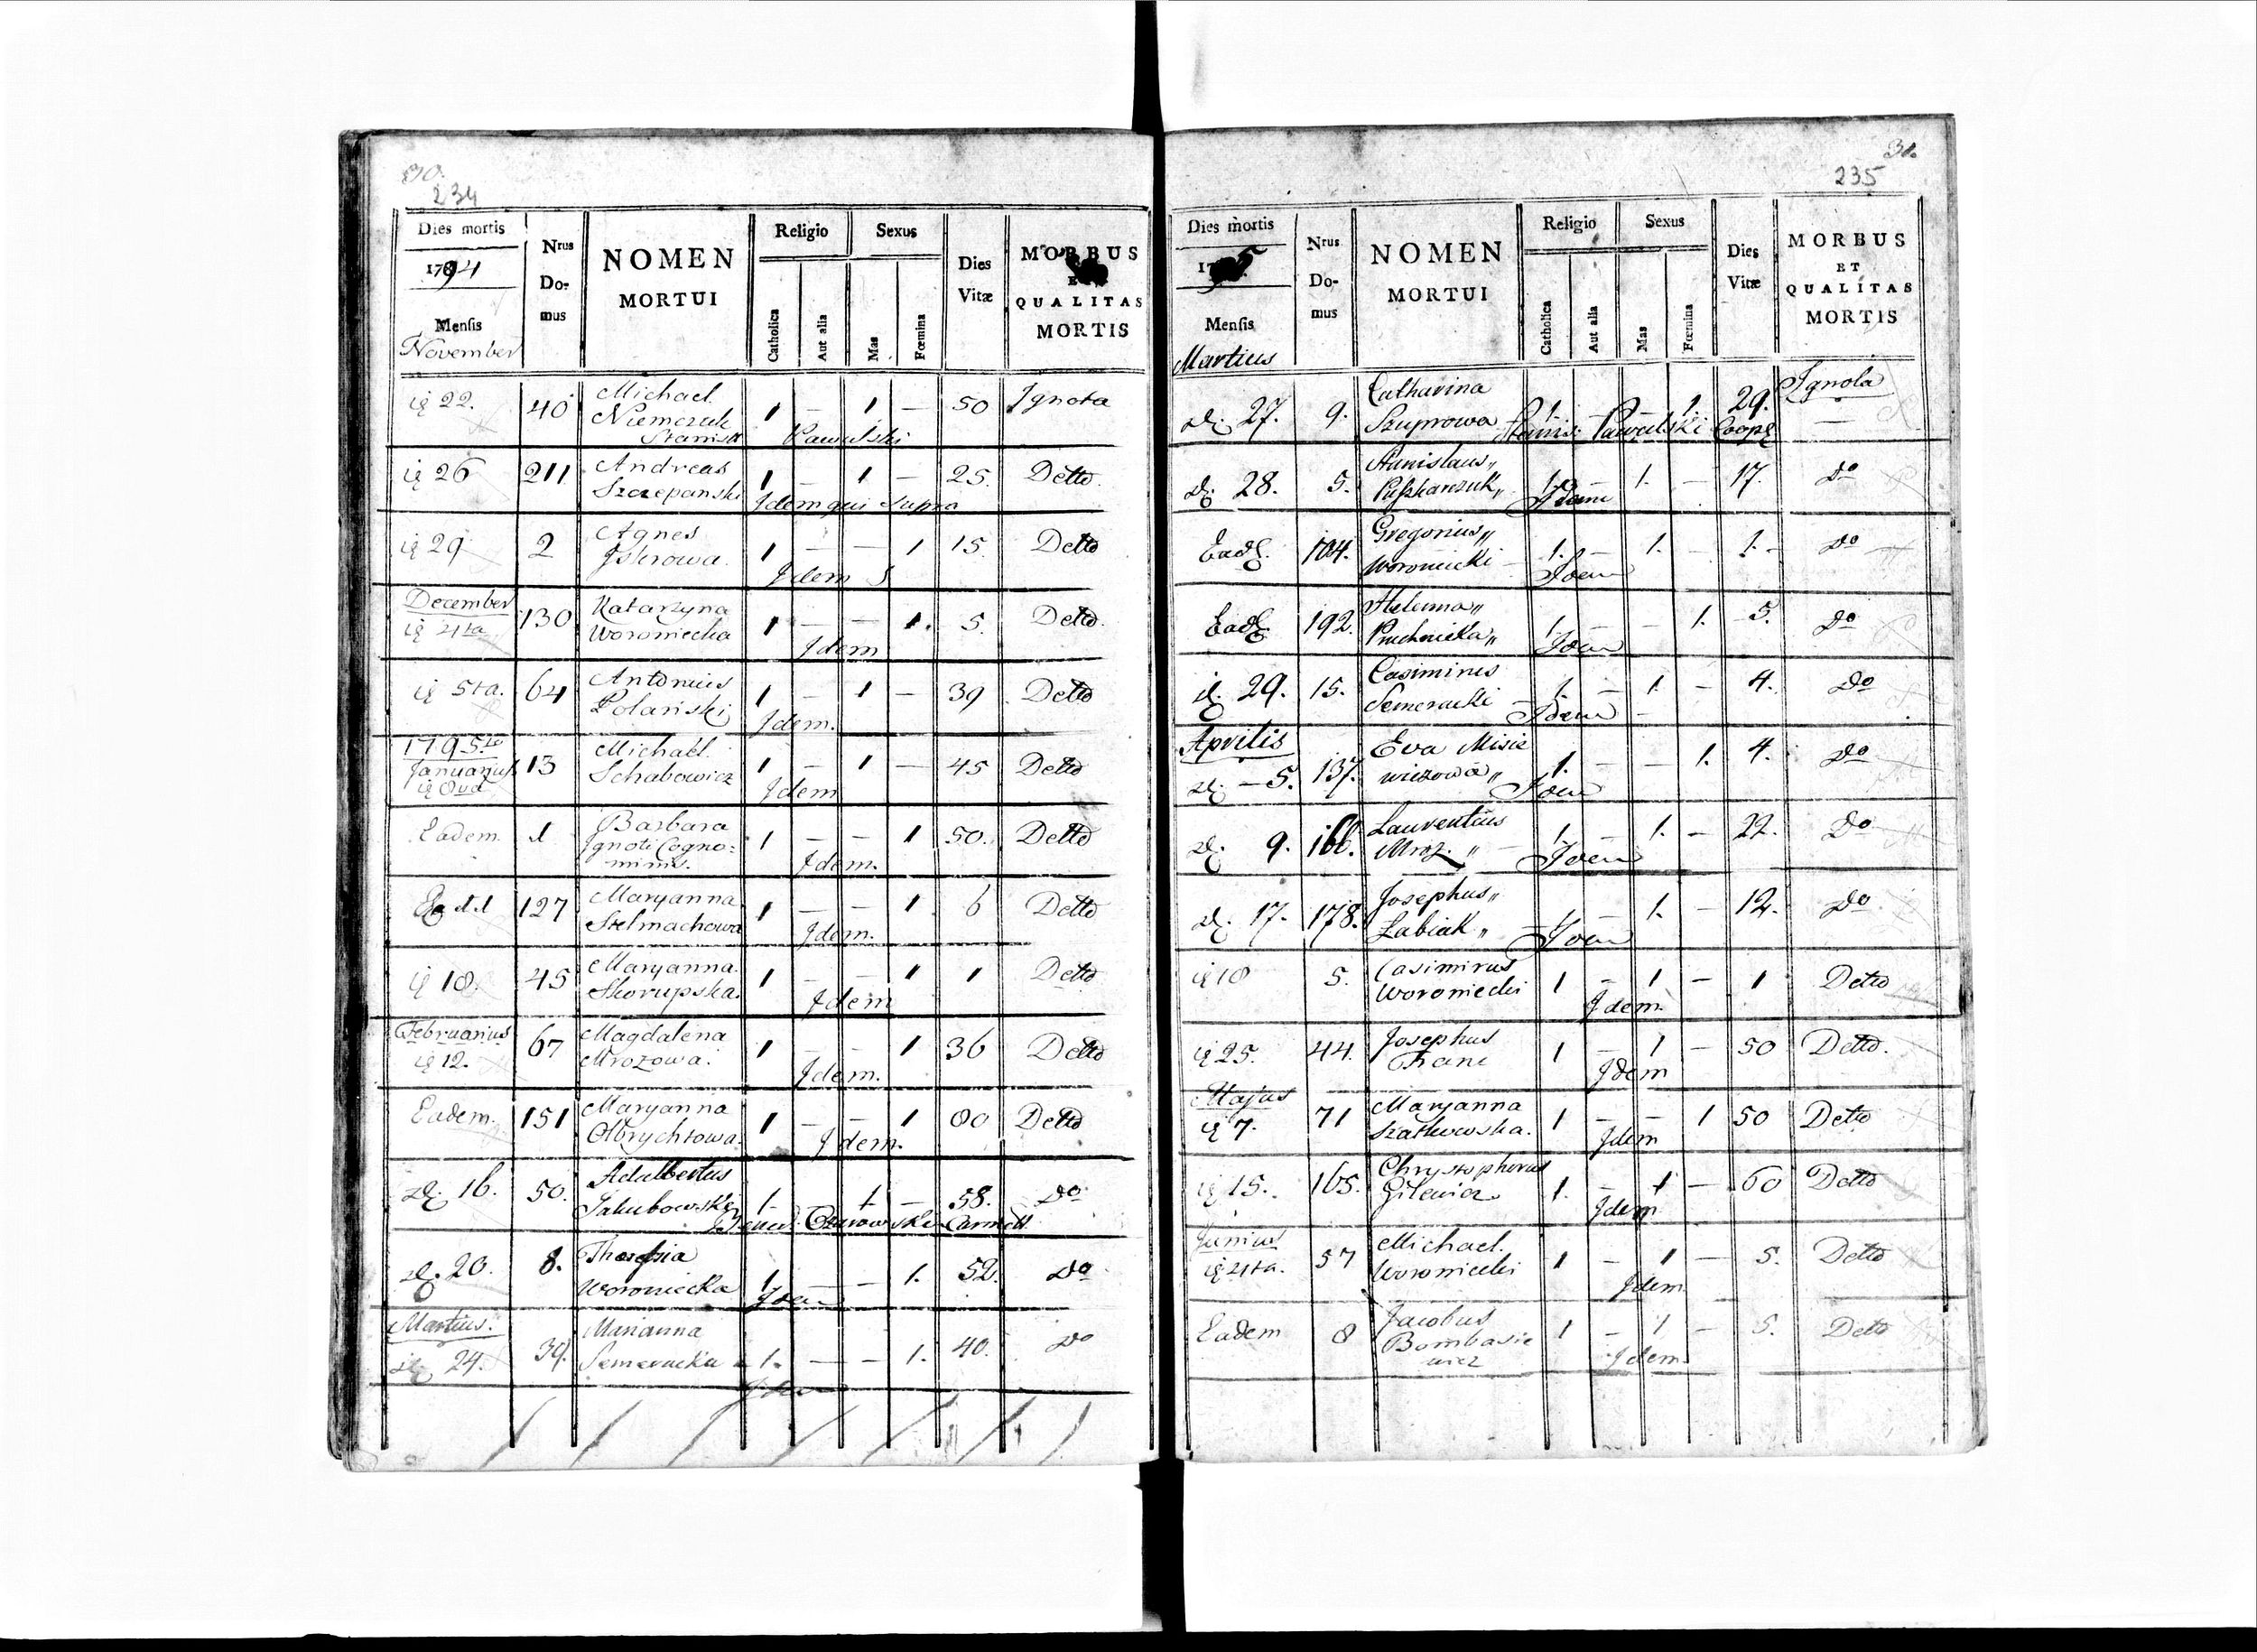 30.
234
Dies mortis
1794
Mensis
November
Nrus
Do-
mus
NOMEN
MORTUI
Religio
Catholica
Aut alia
Sexus
Mas
Fœmina
Dies
Vitæ
MORBUS
ET
QUALITAS
MORTIS
22. 40 Michael 1 — 1 — 50 Ignota
Niemczuk
Stanisł Pawulski
26 211 Andreas 1 — 1 — 25. Detto.
Szczepanski
Idem qui supra
29 2 Agnes 1 — — 1 15. Detto
Iskrowa.
Idem S
December
4ta 130 Katarzyna 1 — — 1. 5. Detto.
Woroniecka
Idem
5ta. 64 Antonius 1 — 1 — 39 Detto
Polański
Idem.
1795to
Januarius
8va 13 Michael. 1 — 1 — 45 Detto
Schabowicz
Idem
Eadem. 1 Barbara 1 — — 1 50. Detto
Ignoti Cogno:
minis.
Idem.
127 Maryanna 1 — — 1 6 Detto
Stelmachowa
Idem.
18. 45 Maryanna. 1 — — 1 1 Detto
Skorupska.
Idem
Februarius
12. 67 Magdalena 1 — — 1 36 Detto
Mrozowa.
Idem.
Eadem. 151 Maryanna 1 — — 1 80 Detto
Olbrychtowa.
Idem.
16. 50. Adalbertus 1. — 1. — 58. Do
Jakubowski
Czurowski Carmelt
20. 8. Woroniecka 1. — — 1. 52. Do
Idem
Martius.
24. 39. Marianna 1. — — 1. 40. Do
Semeracka
Idem
31.
235
Dies mortis
5
Mensis
Martius
Nrus
Do-
mus
NOMEN
MORTUI
Religio
Catholica
Aut alia
Sexus
Mas
Fœmina
Dies
Vitæ
MORBUS
ET
QUALITAS
MORTIS
27. 9. Catharina 1. — — 1. 29. Ignota
Szuprowa Stanis: Pawulski Coop
28. 5. Stanislaus 1. — 1. — 17. Do
Puszkarczuk
Idem
Ead 104. Gregorius 1. — 1. — 1. Do
Woroniecki
Idem
Ead 192. Helenna 1. — — 1. 5. Do
Pruchnicka
Idem
29. 15. Casimirus 1. — 1. — 4. Do
Semeracki
Idem
Aprilis
5. 137. Eva Misie 1. — — 1. 4. Do
wiczowa
Idem
9. 166. Laurentius 1. — 1. — 22. Do
Mroz
Idem
17. 178. Josephus 1. — 1. — 12. Do
Łabiak
Idem
18 5. Casimirus 1 — 1 — 1 Detto
Woroniecki
Idem.
25. 44. Josephus 1 — 1 — 50 Detto.
Franc
Idem
Majus
7. 71 Maryanna 1 — — 1 50 Detto
Szatkowska.
Idem
15. 165. Chrystophorus 1. — 1 — 60 Detto
Gilewicz.
Idem
Junius
4ta. 57 Michael. 1 — 1 — 5. Detto
Woroniecki
Idem
Eadem 8 Jacobus 1 — 1 — 5. Detto
Bombasie
wicz
Idem